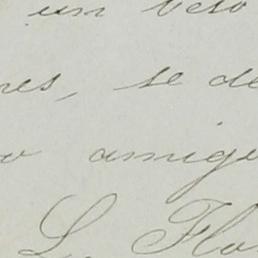 un beso
res, se de
o amigo
L. Flo